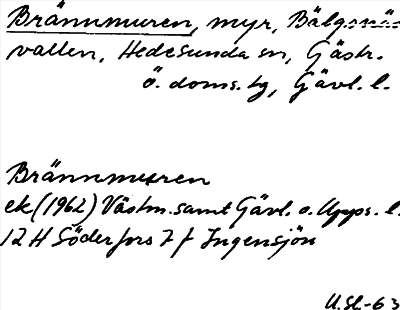 Brännmuren, myr, Bälgsnäs-
vallen, Hedesunda sn, Gästr.
Ö. doms. tg, Gävl. l.
Brännmuren
ek (1962) Västm. samt Gävl. o. Upps. l.
12 H Söderfors 7 f Ingensjön
U.Sl.-63